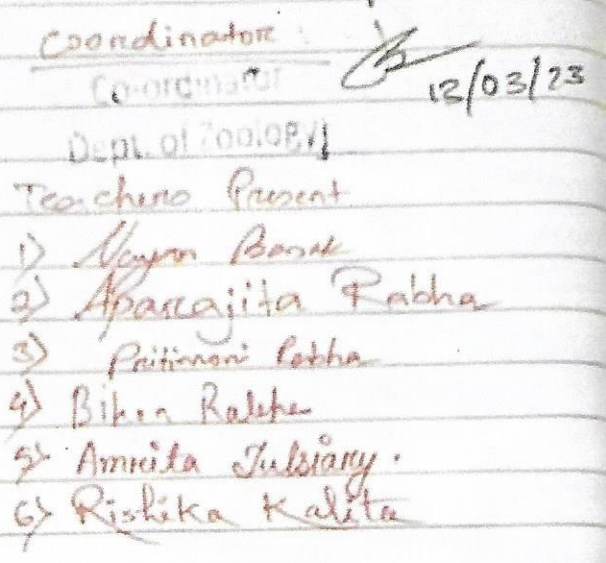 Coordinator:
12/03/23
Co-ordinator
Dept. of Zoology
Teachers Present
1) Nayan Basak
2) Aparajita Rabha
3) Pritimoni Rabha
4) Bikon
5) Amrita Tulsiany.
6) Rishika Kalita